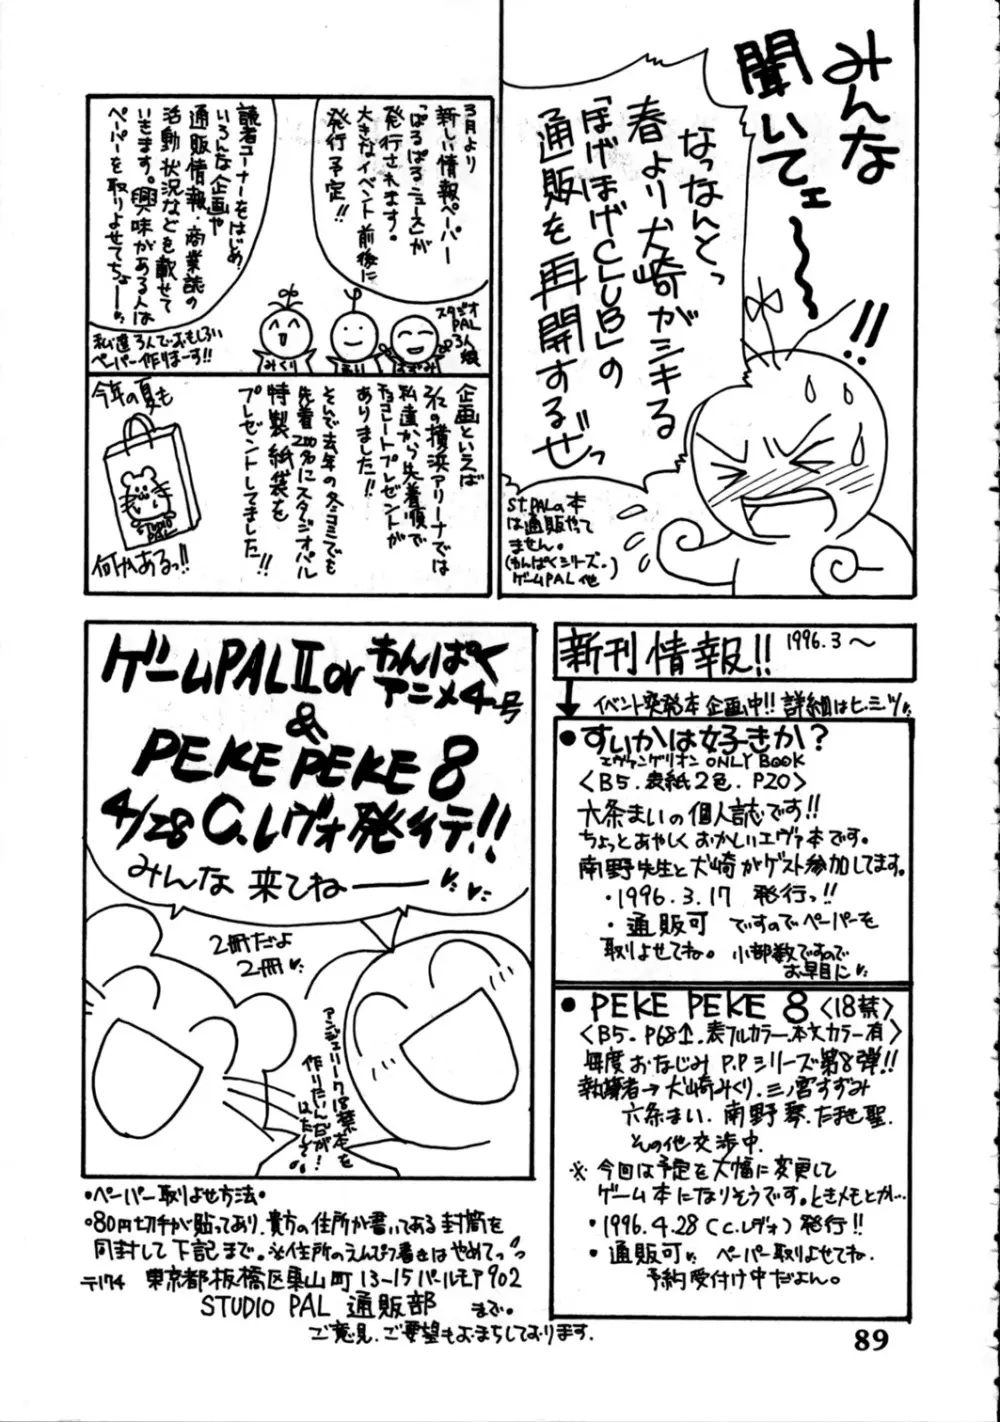 みんな
聞いてェ〜〜
!!
なっなんとっ
春より犬崎がシキる
「ほげほげCLUB」の
通販を再開するぜっ
ST.PALの本
は通販やって
ません。
(わんぱくシリーズ。
ゲームPAL他)
3月より
新しい情報ペーパー
「ぱるぱるニュース」が
発行されます。
大きなイベント前後に
発行予定!!
読者コーナーをはじめ、
いろんな企画や
通販情報・商業誌の
活動状況などを載せて
いきます。興味がある人は
ペーパーを取りよせてちょーっ
スタジオ
PAL
3人娘
みくり
私達3人で、おもしろい
ペーパー作りまーす!!
企画といえば
3/2の横浜アリーナでは
私達から先着順で
チョコレートプレゼントが
ありました!!
そんで去年の冬コミでも
先着200名にスタジオパル
特製紙袋を
プレゼントしてました!!
今年の夏も
STUDIO
PAL
何かあるっ!!
ゲームPALII or わんぱく
アニメ4号
&
PEKE PEKE 8
4/28 C.レヴォ発行デ!!
みんな 来てね――
2冊だよ
2冊
アンジェリーク18禁本を
作りたいんだが!
はたして。
新刊情報!! 1996.3〜
イベント突発本企画中!! 詳細はヒ・ミ・ツ
●すいかは好きか?
エヴァンゲリオン ONLY BOOK
〈B5.表紙2色.P20〉
六条まいの個人誌です!!
ちょっとあやしくおかしいエヴァ本です。
南野先生と犬崎がゲスト参加してます。
・1996.3.17 発行っ!!
・通販可 ですのでペーパーを
取りよせてね。小部数ですので
お早目に
●PEKE PEKE 8〈18禁〉
〈B5.P68↑.表フルカラー.本文カラー有〉
毎度おなじみP.Pシリーズ第8弾!!
執筆者→犬崎みくり.三ノ宮すずみ
六条まい.南野琴.たませ聖.
その他交渉中.
※今回は予定を大幅に変更して
ゲーム本になりそうです。ときメモとか…
・1996.4.28(C.レヴォ)発行!!
・通販可 ペーパー取りよせてね.
予約受付け中だよん。
・ペーパー取りよせ方法・
・80円切手が貼ってあり.貴方の住所が書いてある封筒を
同封して下記まで。※住所のえんぴつ書きはやめてっ
〒174 東京都板橋区東山町13-15パールモア902
STUDIO PAL 通販部 まで。
ご意見.ご要望もおまちしております.
89